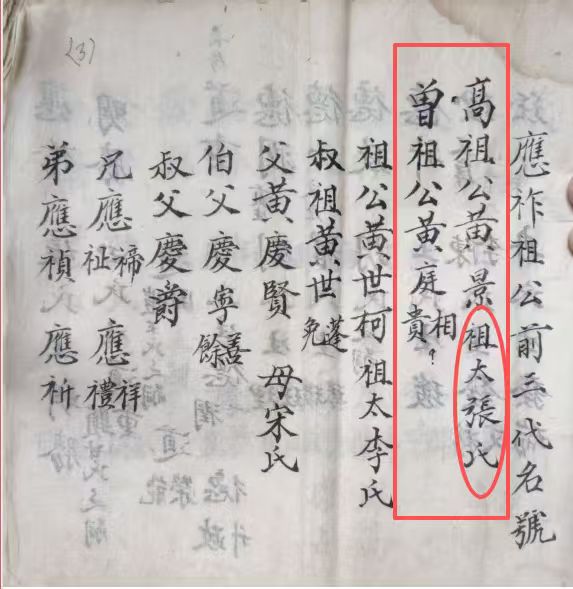 (3)
應祚祖公前三代名號
高祖公黃景祖太張氏
曾祖公黃庭相貴?
祖公黃世柯祖太李氏
叔祖黃世蓬免
父黃慶賢 母宋氏
伯父慶寧善餘
叔父慶爵
兄應禘祉應祥禮
弟應禎應祈